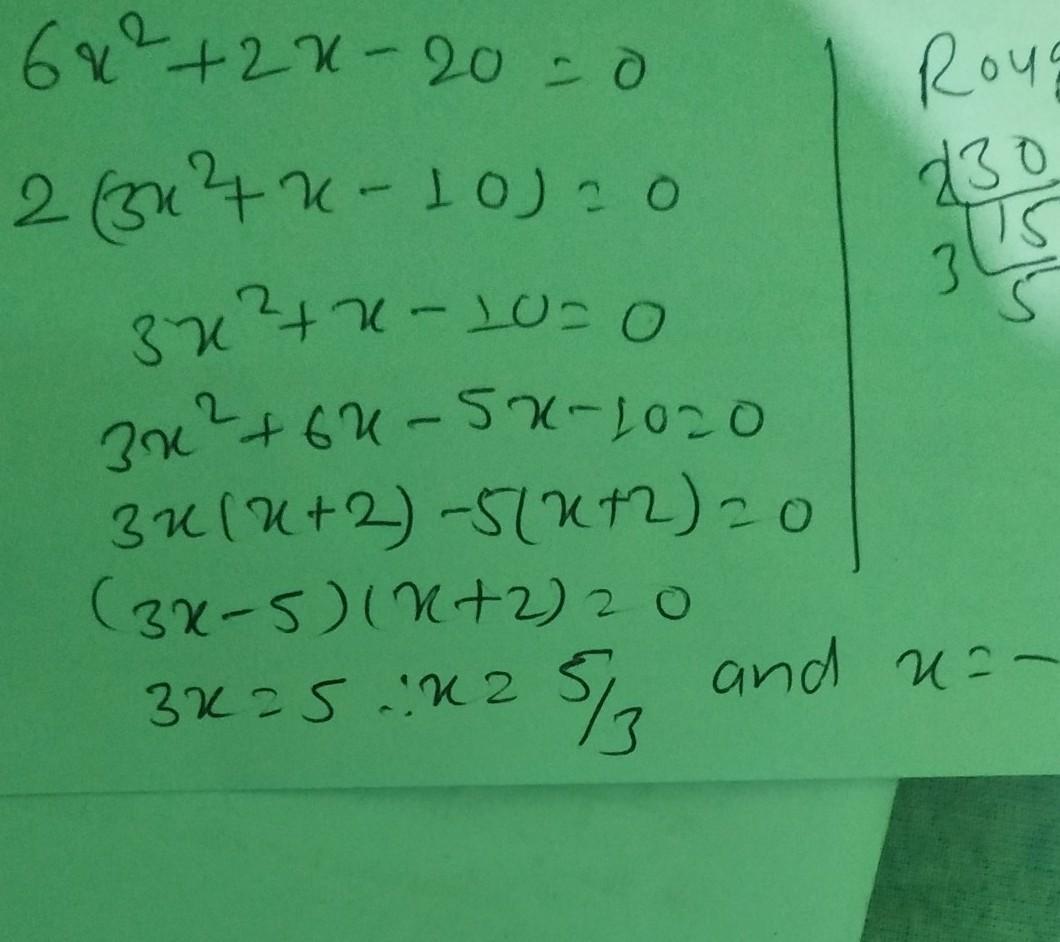 6x²+2x-20=0
2(3x²+x-10)=0
3x²+x-10=0
3x²+6x-5x-10=0
3x(x+2)-5(x+2)=0
(3x-5)(x+2)=0
3x=5 ∴x=5/3 and x=-
2 30
3 15
5